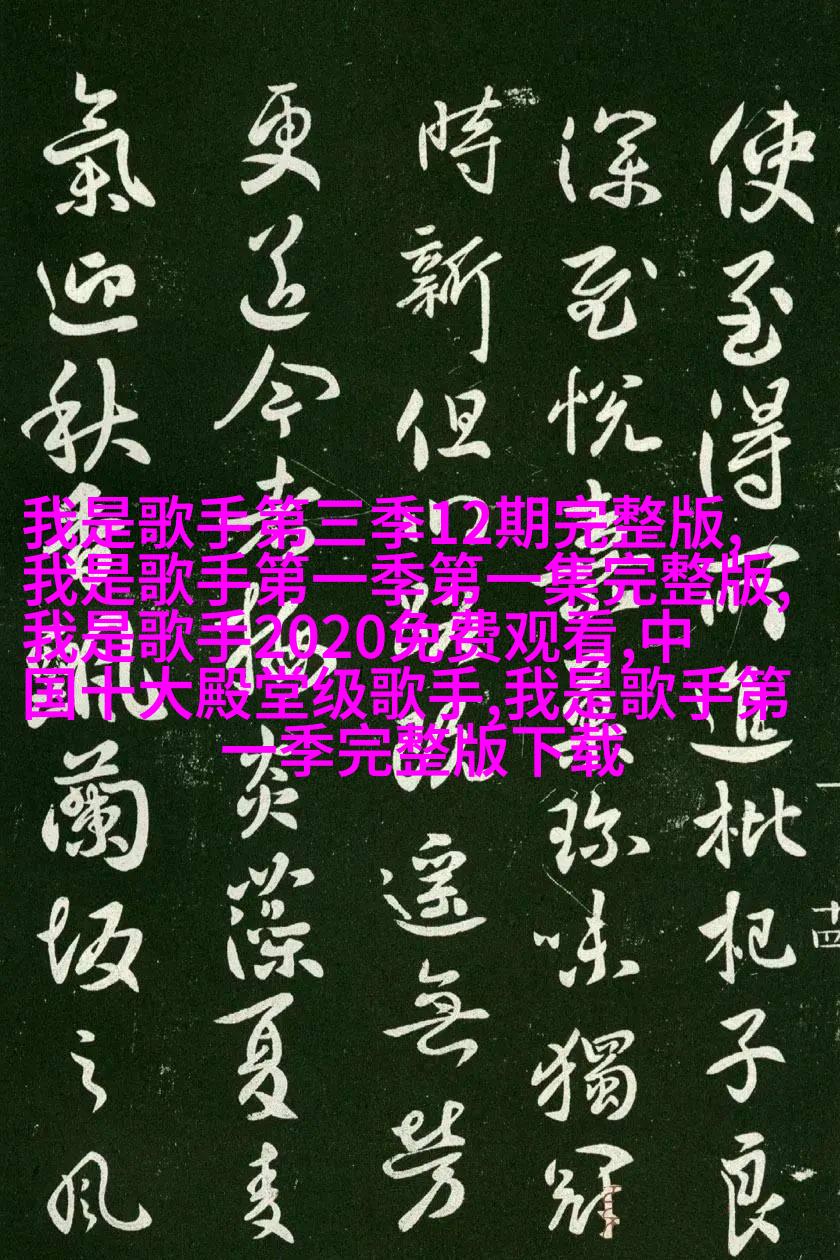 使至得所進枇杷子良
深慰悅嘉果珍味獨冠
時新但遥無勞
更送今者炎藻夏麥
氣迎秋風蘭坂之風
十四
我是歌手第三季12期完整版,
我是歌手第一季第一集完整版,
我是歌手2020免费观看,中
国十大殿堂级歌手,我是歌手第
一季完整版下载